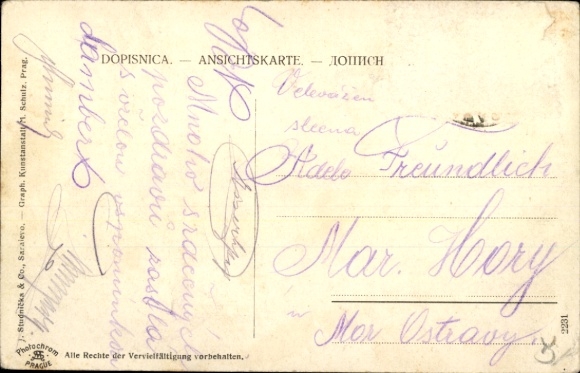 DOPISNICA. — ANSICHTSKARTE. — ДОПИСН
Velevážen
slečna
Adele Freundlich
Mar. Hory
Mor Ostravy
Mnoho srdečných
pozdravů zasílá
s vřelou vzpomínkou
Lambert
J. Studnička & Co., Sarajevo. — Graph. Kunstanstalt Fr. Schulz, Prag.
Photochrom
PRAGUE
Alle Rechte der Vervielfältigung vorbehalten.
2231